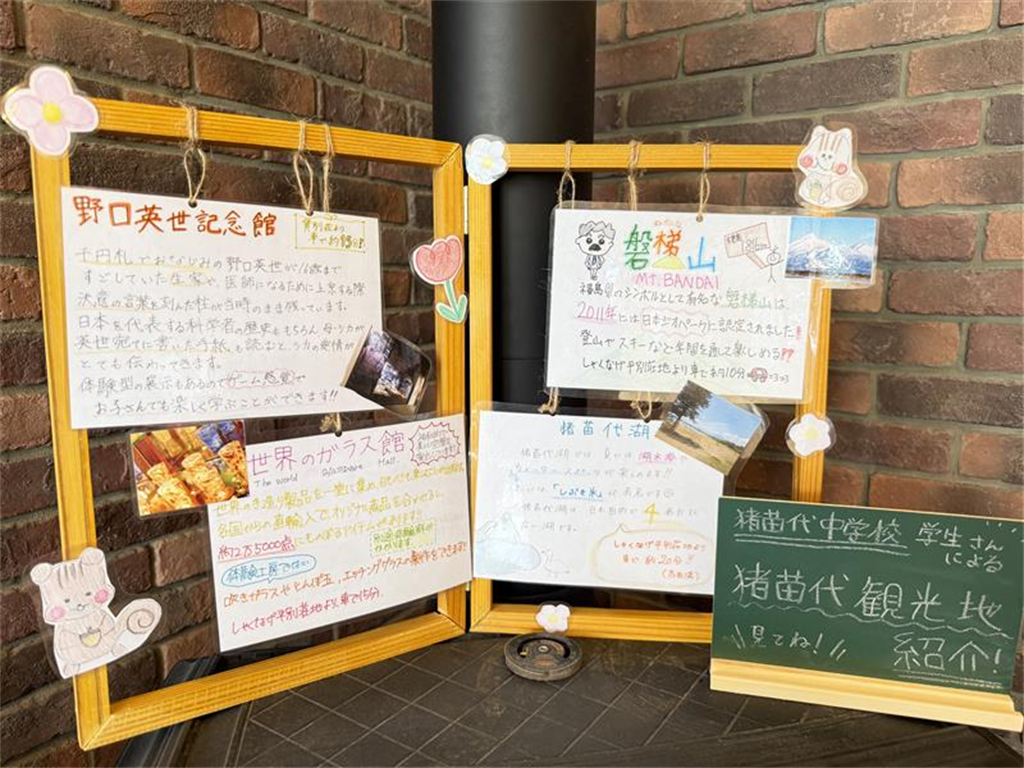 野口英世記念館
車で約15分!
千円札でおなじみの野口英世が16歳まで
すごしていた生家や、医師になるために上京する際
決意の言葉を刻んだ柱が当時のまま残っています。
日本を代表する科学者の歴史はもちろん 母・シカが
英世宛てに書いた手紙も読むと、シカの愛情が
とても伝わってきます。
体験型の展示もあるのでゲーム感覚で
お子さんでも楽しく学ぶことができます!!
世界のガラス館
The world Glassware Hall.
世界の手造り製品を一堂に集め、
各国からの直輸入で、オリジナル商品を合わせると
約2万5000点にものぼるアイテムがあります。
体験工房では
吹きガラスやとんぼ玉、エッチンググラスの製作もできます!
しゃくなげ平別荘地より車で15分。
磐梯山
MT.BANDAI
1816m
福島県のシンボルとして有名な磐梯山は
2011年には日本ジオパークに認定されました!
登山やスキーなど年間を通して楽しめる!?
しゃくなげ平別荘地より車で約10分
猪苗代湖
猪苗代湖では 夏には湖水浴や
しゃくなげ平別荘地より
車で約20分!!
猪苗代中学校 学生さん
による
猪苗代観光地
紹介!
見てね!